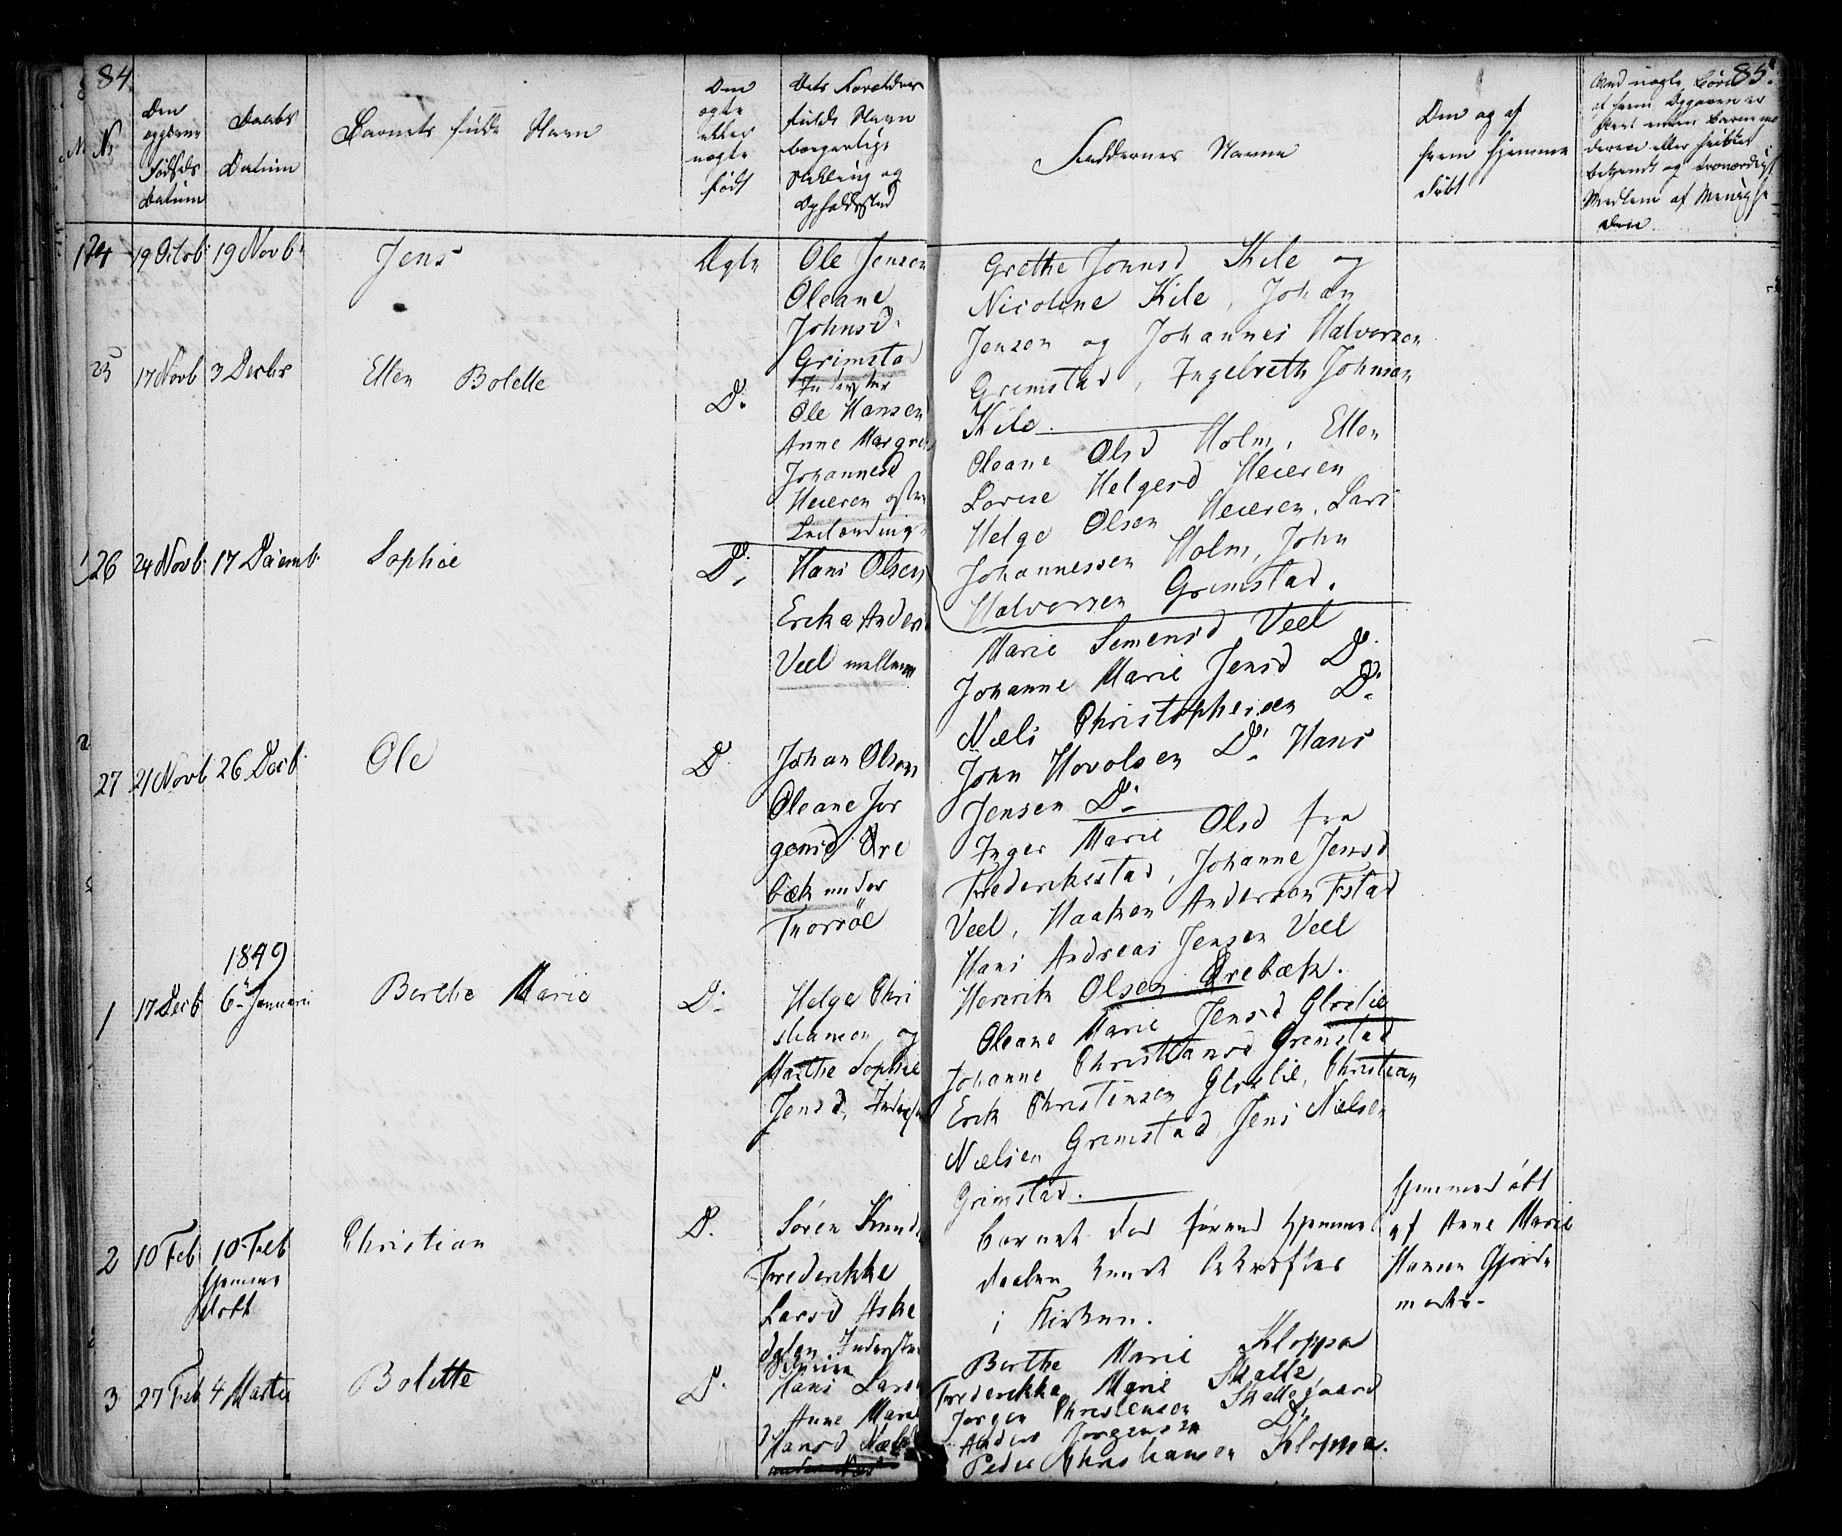 84.
85.
No
Den opgivne Fødsels Datum
Daabs Datum
Barnets fulde Navn
Den ægte eller uægte født
Dets Forældres fulde Navn borgerlige Stilling og Opholdssted
Faddernes Navne
Om og af hvem hjemme døbt
Ved uægte Børn
af hvem Opgaven er
Medlem af Menighe
den.
124
19 Octob.
19 Novb.
Jens
Ægte
Ole Jensen
Oleane
Johnsd.
Grimstad
Grethe Jonnsd Kile og
Nicoline Kile, Johan
Jensen og Johannes Halvorsen
Grimstad, Ingebreth Johnsen
Kile.
25
17 Novb
3 Decbr
Ellen Bolette
Do.
Ole Hansen
Anne Margre
Johannesd
Heieren
Oleane Olsd Holm, Ellen
Lovise Helgesd Heieren
Helge Olsen Heieren, Lars
Johannessen Holm, John
Halvorsen Grimstad.
26
24 Novb.
17 Decemb.
Sophie
Do.
Hans Olsen
Ericka Anders
Veel mellem
Marie Simensd Veel
Johanne Marie Jensd Do.
Niels Christophersen Do.
John Hovolsen Do. Hans
Jensen Do.
27
21 Novb
26 Decb.
Ole
Do
Johan Olsen
Oleane Jør
gensd Øre
bæk under
Thorsøe
Inger Marie Olsd fra
Frederikstad, Johanne Jensd
Veel, Haaken Andersen Fstad
Hans Andreas Jensen Veel
Henrik Olsen Ørebæk.
1849
1
17 Decb
6 Januarii
Berthe Marie
Do.
Helge Chri
stiansen og
Marthe Sophie
Jensd,
Oleane Marie Jensd Glrelie
Johanne Christiansd Grimstad
Erik Christensen Glrelie, Christian
Nielsen Grimstad, Jens Nielsen
Grimstad.
2
10 Feb
10 Feb
hjemme
døbt
Christian
D.
Søren Knud
Frederikke
Larsd Aske
dalen Inderste
Barnet død førend hjemme
daaben kunde bekræftes
i Kirken.
Hjemmedøbt
af Anne Marie
Hansen Gjorde
moder.
3
27 Feb
4 Martii
Bolette
D.
Hans Lars
Anne Marie
Hansd
Berthe Marie Kloppa
Frederikke Marie Skalle
Jørgen Christensen Skallegaard
Anders Jørgensen Do.
Peder Christiansen Kloppa.